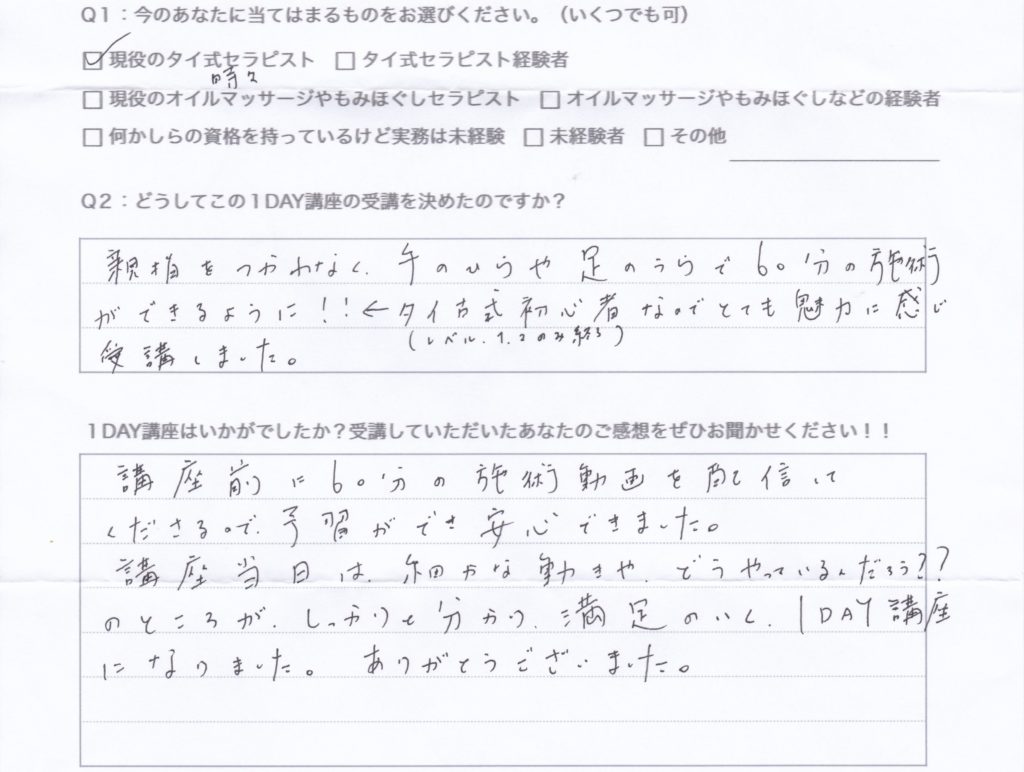 Q1:今のあなたに当てはまるものをお選びください。(いくつでも可)
☑ 現役のタイ式セラピスト □ タイ式セラピスト経験者
時々
□ 現役のオイルマッサージやもみほぐしセラピスト □ オイルマッサージやもみほぐしなどの経験者
□ 何かしらの資格を持っているけど実務は未経験 □ 未経験者 □ その他
Q2:どうしてこの1DAY講座の受講を決めたのですか?
親指をつかわなく、手のひらや足のうらで60分の施術
ができるように!!←タイ古式初心者なのでとても魅力に感じ
(レベル.1.2のみ終了)
受講しました。
1DAY講座はいかがでしたか?受講していただいたあなたのご感想をぜひお聞かせください!!
講座前に60分の施術動画を配信して
くださるので、予習ができ安心できました。
講座当日は、細かな動きや、どうやっているんだろう??
のところが、しっかりと分かり、満足のいく、1DAY講座
になりました。 ありがとうございました。